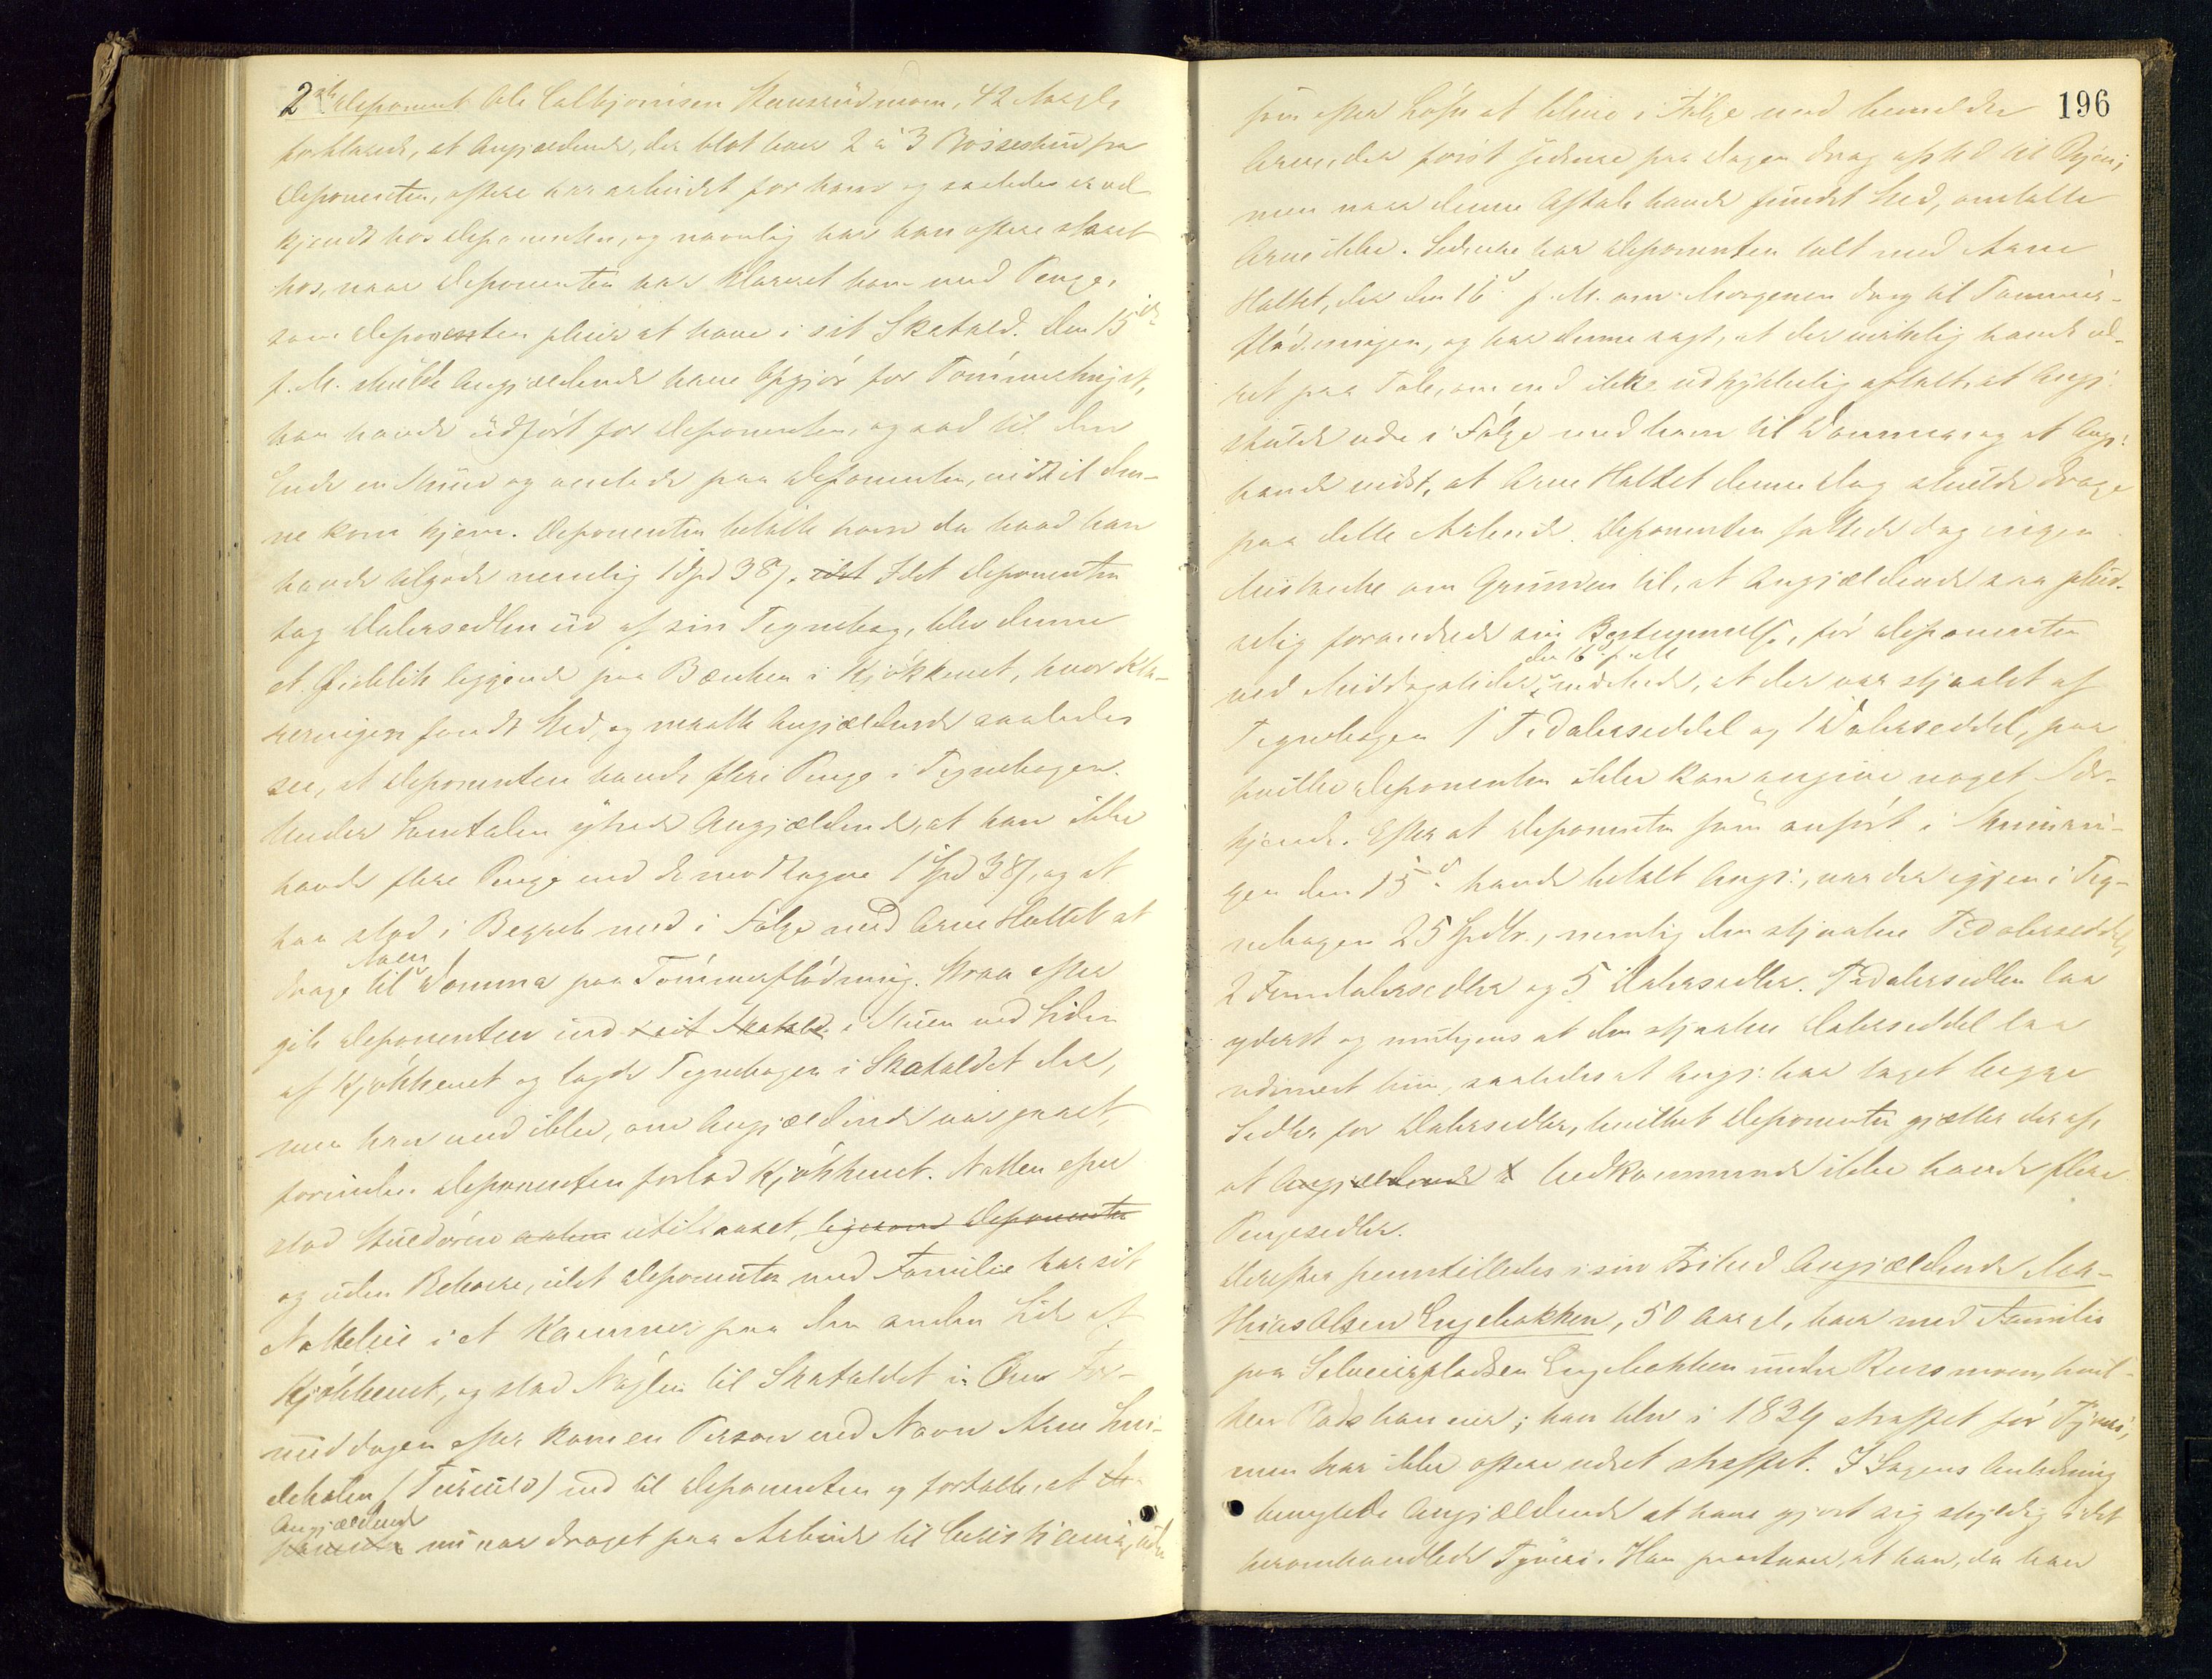 2den Deponent Ole Colbjørnsen Hensrudmoen, 42 Aar gl.
forklarede, at Angjældende, der blot boer 2 à 3 Bøsseskud fra
Deponenten, oftere har arbeidet for ham og saaledes er vel
kjendt hos Deponenten, og navnlig har han oftere staaet
hos, naar Deponenten har klareret ham med Penge,
som Deponenten pleier at have i sit Skatald. Den 15de
f. M. skulde Angjældende have Opgjør for Tømmerhugst,
han havde udført for Deponenten, og sad til den
Ende en Stund og ventede paa Deponenten, indtil den-
ne kom hjem. Deponenten betalte ham da hvad han
havde tilgode nemlig 1 Spd 38 s. idet Idet Deponenten
tog Dalersedlen ud af sin Tegnebog, blev denne
et Øieblik liggende paa Bænken i Kjøkkenet, hvor Kla-
reringen fandt Sted, og maatte Angjældende saaledes
see, at Deponenten havde flere Penge i Tegnebogen.
Under Samtalen ytrede Angjældende, at han ikke
havde flere Penge end de modtagne 1 Spd 38 s, og at
han stod i Begreb med i Følge med Arne Haltet at
drage til Aaen Domma paa Tømmerflødning. Straa efter
gik Deponenten ind i sit Skatald i Stuen ved Siden
af Kjøkkenet og lagde Tegnebogen i Skataldet der,
men han ved ikke, om Angjældende var gaaet,
forinden Deponenten forlod Kjøkkenet. Natten efter
stod Stuedøren aaben utillaaset, ligesom Deponenten
og uden Beboere, idet Deponenten med Familie har sit
Natteleie i et Kammer paa den anden Side af
Kjøkkenet, og stod Nøglen til Skataldet i. Om For-
middagen efter kom en Person ved Navn Arne
(Tusvild) ind til Deponenten og fortalte, at
Angjældende nu var draget paa Arbeide til Christiania, uden
196
som efter Løfte at blive i Følge med bemeldte
Arne, der først senere paa Dagen drog afsted til Byen;
men naar denne Aftale havde fundet Sted, omtalte
Arne ikke. Senere har Deponenten talt med Arne
Haltet, der den 16de f. M. om Morgenen drog til Tømmer-
flødningen, og har denne sagt, at det virkelig havde væ-
ret paa Tale, om end ikke udtrykkelig aftalt, at Angj:
skulde være i Følge med ham til Domma, og at Angj:
havde vidst, at Arne Haltet denne Dag skulde drage
paa dette Arbeide. Deponenten fattede dog ingen
Mistanke om Grunden til, at Angjældende saa plud-
selig forandrede sin Bestemmelse, før Deponenten
ved Middagstider den 16 f. M. opdagede, at der var stjaalet af
Tegnebogen 1 Tidalerseddel og 1 Dalerseddel, paa
hvilke Deponenten ikke kan angive noget Sær-
kjende. Efter at Deponenten som anført i Skumrin-
gen den 15de havde betalt Angj:, var der igjen i Teg-
nebogen 25 Spdlr., nemlig den stjaalne Tidalerseddel,
2 Femdalersedler og 5 Dalersedler. Tidalersedlen laa
yderst og muligens at den stjaalne Dalerseddel laa
udimod hin, saaledes at Angj: har taget begge
Sedler for Dalersedler, hvilket Deponenten gjætter deraf,
at Angjældende Vedkommende ikke havde flere
Pengesedler.
Derefter fremstilledes i sin Frihed Angjældende Ma-
thias Olsen Engebakken, 50 Aar gl., boer med Familie
paa Selveierpladsen Engebakken under Rensmoen, hvil-
ken Plads han eier; han blev i 1839 straffet for Tyveri,
men har ikke oftere været straffet. I Sagens Anledning
benegtede Angjældende at have gjort sig skyldig i det
heromhandlede Tyveri. Han paastaaer, at han, da han